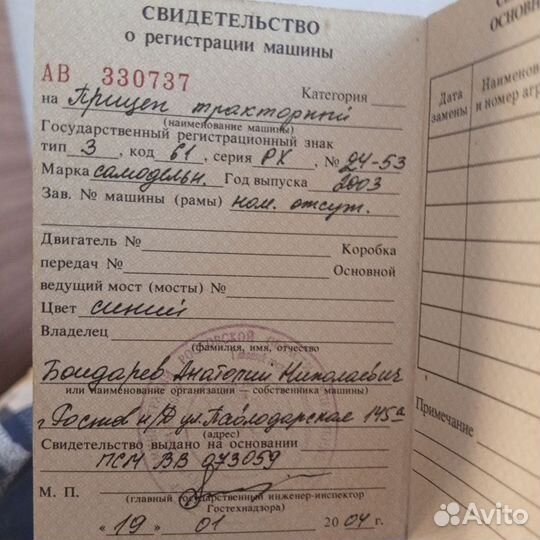 СВИДЕТЕЛЬСТВО
о регистрации машины
АВ 330737
Категория
на Прицеп тракторный
(наименование машины)
Государственный регистрационный знак
тип 3, код 61, серия РХ, № 24-53
Марка самодельн. Год выпуска 2003
Зав. № машины (рамы) ном. отсут.
Двигатель № Коробка
передач № Основной
ведущий мост (мосты) №
Цвет синий
Владелец
(фамилия, имя, отчество
Бондарев Анатолий Николаевич
или наименование организации — собственника машины)
г Ростов н/Д ул. Павлодарская 145а
(адрес)
Свидетельство выдано на основании
ПСМ ВВ 973059
М. П.
(главный государственный инженер-инспектор
Гостехнадзора)
« 19 » 01 2004 г.
ОСНОВН
Дата
замены
Наименов
и номер агр
Примечание
Avito